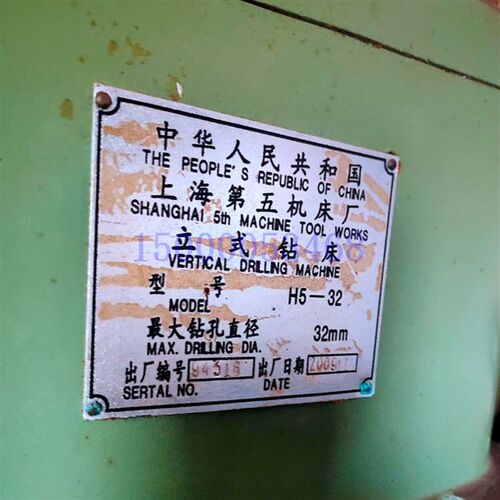 中华人民共和国
THE PEOPLE'S REPUBLIC OF CHINA
上海第五机床厂
SHANGHAI 5th MACHINE TOOL WORKS
立式钻床
VERTICAL DRILLING MACHINE
型号 H5-32
MODEL
最大钻孔直径 32mm
MAX. DRILLING DIA.
出厂编号 出厂日期
SERTAL NO. DATE